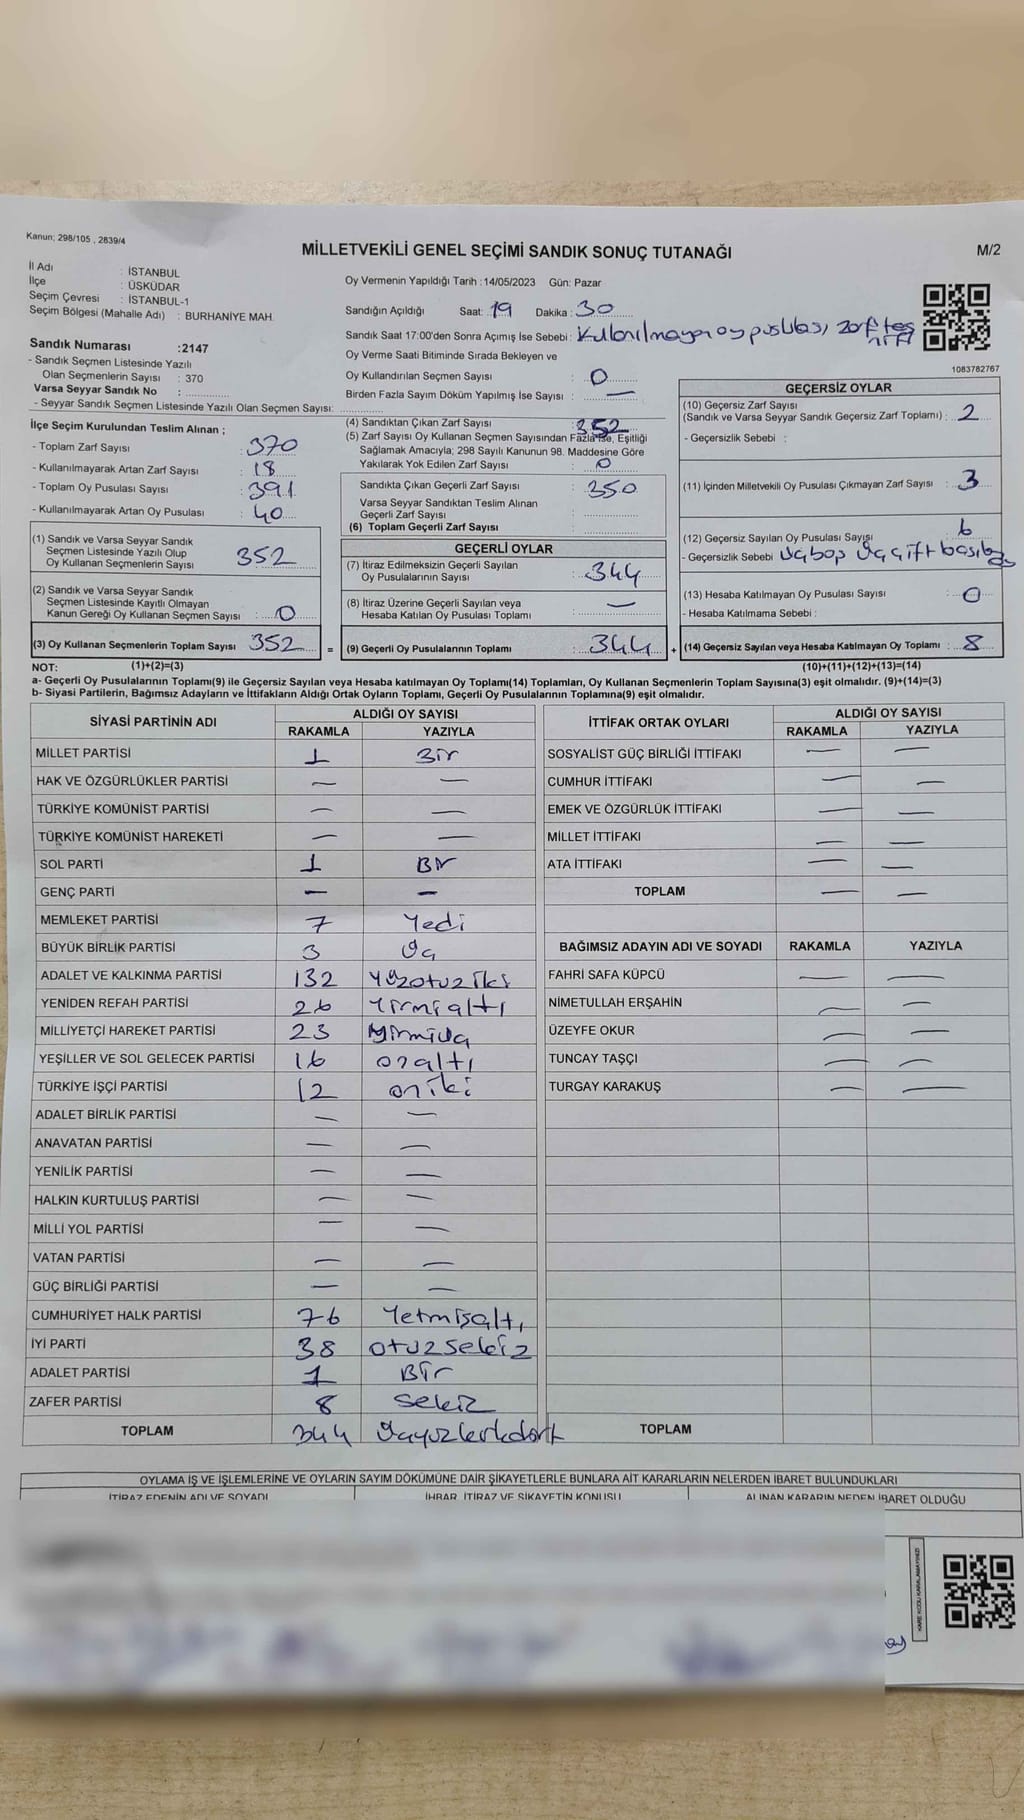 Kanun; 298/105 , 2839/4
MİLLETVEKİLİ GENEL SEÇİMİ SANDIK SONUÇ TUTANAĞI
M/2
İl Adı : İSTANBUL
İlçe : ÜSKÜDAR
Seçim Çevresi : İSTANBUL-1
Seçim Bölgesi (Mahalle Adı) : BURHANİYE MAH.
Oy Vermenin Yapıldığı Tarih :14/05/2023 Gün: Pazar
Sandığın Açıldığı Saat: 19 Dakika: 30
Sandık Saat 17:00'den Sonra Açımış İse Sebebi : Kullanılmayan oy puslası, zarf tes
Oy Verme Saati Bitiminde Sırada Bekleyen ve
Oy Kullandırılan Seçmen Sayısı : 0
Birden Fazla Sayım Döküm Yapılmış İse Sayısı : —
1083782767
Sandık Numarası :2147
- Sandık Seçmen Listesinde Yazılı
Olan Seçmenlerin Sayısı : 370
Varsa Seyyar Sandık No :
- Seyyar Sandık Seçmen Listesinde Yazılı Olan Seçmen Sayısı:
İlçe Seçim Kurulundan Teslim Alınan ;
- Toplam Zarf Sayısı : 370
- Kullanılmayarak Artan Zarf Sayısı : 18
- Toplam Oy Pusulası Sayısı : 391
- Kullanılmayarak Artan Oy Pusulası : 40
(1) Sandık ve Varsa Seyyar Sandık
Seçmen Listesinde Yazılı Olup
Oy Kullanan Seçmenlerin Sayısı 352
(2) Sandık ve Varsa Seyyar Sandık
Seçmen Listesinde Kayıtlı Olmayan
Kanun Gereği Oy Kullanan Seçmen Sayısı : 0
(3) Oy Kullanan Seçmenlerin Toplam Sayısı 352 =
(4) Sandıktan Çıkan Zarf Sayısı : 352
(5) Zarf Sayısı Oy Kullanan Seçmen Sayısından Fazla İse, Eşitliği
Sağlamak Amacıyla; 298 Sayılı Kanunun 98. Maddesine Göre
Yakılarak Yok Edilen Zarf Sayısı : 0
Sandıkta Çıkan Geçerli Zarf Sayısı : 350
Varsa Seyyar Sandıktan Teslim Alınan
Geçerli Zarf Sayısı :
(6) Toplam Geçerli Zarf Sayısı :
GEÇERLİ OYLAR
(7) İtiraz Edilmeksizin Geçerli Sayılan
Oy Pusulalarının Sayısı : 344
(8) İtiraz Üzerine Geçerli Sayılan veya
Hesaba Katılan Oy Pusulası Toplamı : —
(9) Geçerli Oy Pusulalarının Toplamı : 344 +
GEÇERSİZ OYLAR
(10) Geçersiz Zarf Sayısı
(Sandık ve Varsa Seyyar Sandık Geçersiz Zarf Toplamı) : 2
- Geçersizlik Sebebi :
(11) İçinden Milletvekili Oy Pusulası Çıkmayan Zarf Sayısı : 3
(12) Geçersiz Sayılan Oy Pusulası Sayısı 6
- Geçersizlik Sebebi
(13) Hesaba Katılmayan Oy Pusulası Sayısı : 0
- Hesaba Katılmama Sebebi :
(14) Geçersiz Sayılan veya Hesaba Katılmayan Oy Toplamı : 8
NOT: (1)+(2)=(3) (10)+(11)+(12)+(13)=(14)
a- Geçerli Oy Pusulalarının Toplamı(9) ile Geçersiz Sayılan veya Hesaba katılmayan Oy Toplamı(14) Toplamları, Oy Kullanan Seçmenlerin Toplam Sayısına(3) eşit olmalıdır. (9)+(14)=(3)
b- Siyasi Partilerin, Bağımsız Adayların ve İttifakların Aldığı Ortak Oyların Toplamı, Geçerli Oy Pusulalarının Toplamına(9) eşit olmalıdır.
SİYASİ PARTİNİN ADI ALDIĞI OY SAYISI
RAKAMLA YAZIYLA
MİLLET PARTİSİ 1 Bir
HAK VE ÖZGÜRLÜKLER PARTİSİ — —
TÜRKİYE KOMÜNİST PARTİSİ — —
TÜRKİYE KOMÜNİST HAREKETİ — —
SOL PARTİ 1 Bir
GENÇ PARTİ — —
MEMLEKET PARTİSİ 7 Yedi
BÜYÜK BİRLİK PARTİSİ 3 Üç
ADALET VE KALKINMA PARTİSİ 132 Yüzotuziki
YENİDEN REFAH PARTİSİ 26 Yirmialtı
MİLLİYETÇİ HAREKET PARTİSİ 23 Yirmiüç
YEŞİLLER VE SOL GELECEK PARTİSİ 16 onaltı
TÜRKİYE İŞÇİ PARTİSİ 12 oniki
ADALET BİRLİK PARTİSİ — —
ANAVATAN PARTİSİ — —
YENİLİK PARTİSİ — —
HALKIN KURTULUŞ PARTİSİ — —
MİLLİ YOL PARTİSİ — —
VATAN PARTİSİ — —
GÜÇ BİRLİĞİ PARTİSİ — —
CUMHURİYET HALK PARTİSİ 76 Yetmişaltı
İYİ PARTİ 38 otuzsekiz
ADALET PARTİSİ 1 Bir
ZAFER PARTİSİ 8 sekiz
TOPLAM 344 Üçyüzkırkdört
İTTİFAK ORTAK OYLARI ALDIĞI OY SAYISI
RAKAMLA YAZIYLA
SOSYALİST GÜÇ BİRLİĞİ İTTİFAKI — —
CUMHUR İTTİFAKI — —
EMEK VE ÖZGÜRLÜK İTTİFAKI — —
MİLLET İTTİFAKI — —
ATA İTTİFAKI — —
TOPLAM — —
BAĞIMSIZ ADAYIN ADI VE SOYADI RAKAMLA YAZIYLA
FAHRİ SAFA KÜPCÜ — —
NİMETULLAH ERŞAHİN — —
ÜZEYFE OKUR — —
TUNCAY TAŞÇI — —
TURGAY KARAKUŞ — —
TOPLAM
OYLAMA İŞ VE İŞLEMLERİNE VE OYLARIN SAYIM DÖKÜMÜNE DAİR ŞİKAYETLERLE BUNLARA AİT KARARLARIN NELERDEN İBARET BULUNDUKLARI
İTİRAZ EDENİN ADI VE SOYADI İHBAR, İTİRAZ VE ŞİKAYETİN KONUSU ALINAN KARARIN NEDEN İBARET OLDUĞU
KARE KODU KARALAMAYINIZ!